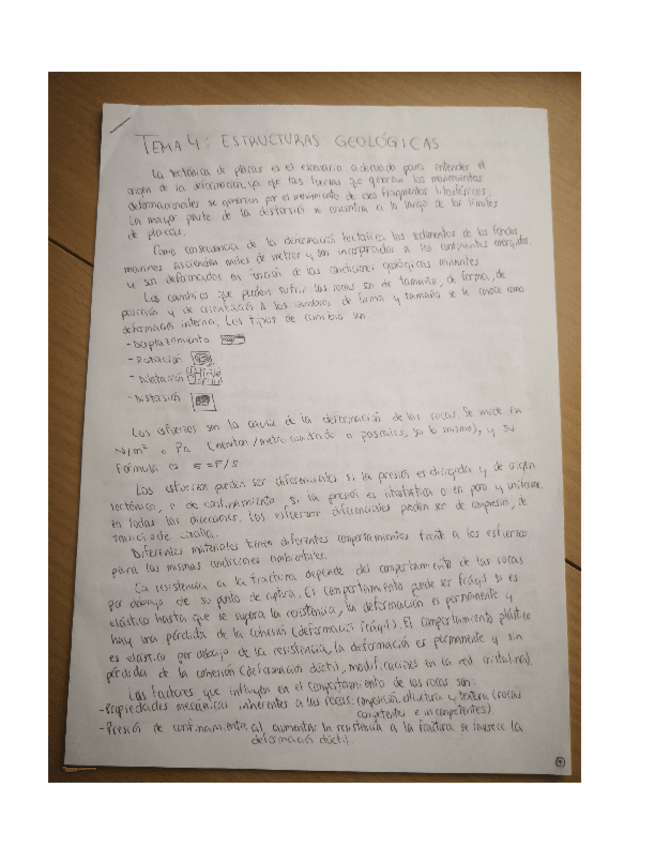 TEMA 4: ESTRUCTURAS GEOLÓGICAS
La tectónica de placas es el escenario adecuado para entender el
origen de la deformación, ya que las fuerzas que generan los movimientos
deformacionales se generan por el movimiento de esos fragmentos litosféricos.
La mayor parte de la distorsión se encuentra a lo largo de los límites
de placas.
Como consecuencia de la deformación tectónica los sedimentos de los fondos
marinos ascienden miles de metros y son incorporados a los continentes emergidos,
y son deformados en función de las condiciones geológicas
Los cambios que pueden sufrir las rocas son de tamaño, de forma, de
posición y de orientación. A los cambios de forma y tamaño se le conoce como
deformación interna. Los tipos de cambio son:
- Desplazamiento
- Rotación
- Dilatación
- Distorsión
Los esfuerzos son la causa de la deformación de las rocas. Se mide en
N/m² o Pa (newton/metro cuadrado o pascales, es lo mismo), y su
fórmula es = F/S
Los esfuerzos pueden ser diferenciales si la presión es dirigida y de origen
tectónico, o de confinamiento si la presión es litostática o en pozo y uniforme
en todas las direcciones. Los esfuerzos diferenciales pueden ser de compresión, de
tracción o de cizalla.
Diferentes materiales tienen diferentes comportamientos frente a los esfuerzos
para las mismas condiciones ambientales.
La resistencia a la fractura depende del comportamiento de las rocas
por debajo de su punto de ruptura. El comportamiento puede ser frágil si es
elástico hasta que se supera la resistencia, la deformación es permanente y
hay una pérdida de la cohesión (deformación frágil). El comportamiento plástico
es elástico por debajo de la resistencia, la deformación es permanente y sin
pérdida de la cohesión (deformación dúctil, modificaciones en la red cristalina).
Los factores que influyen en el comportamiento de las rocas son:
- Propiedades mecánicas inherentes a las rocas: composición, y textura (rocas
competentes e incompetentes)
- Presión de confinamiento: al aumentar la resistencia a la fractura se favorece la
deformación dúctil.